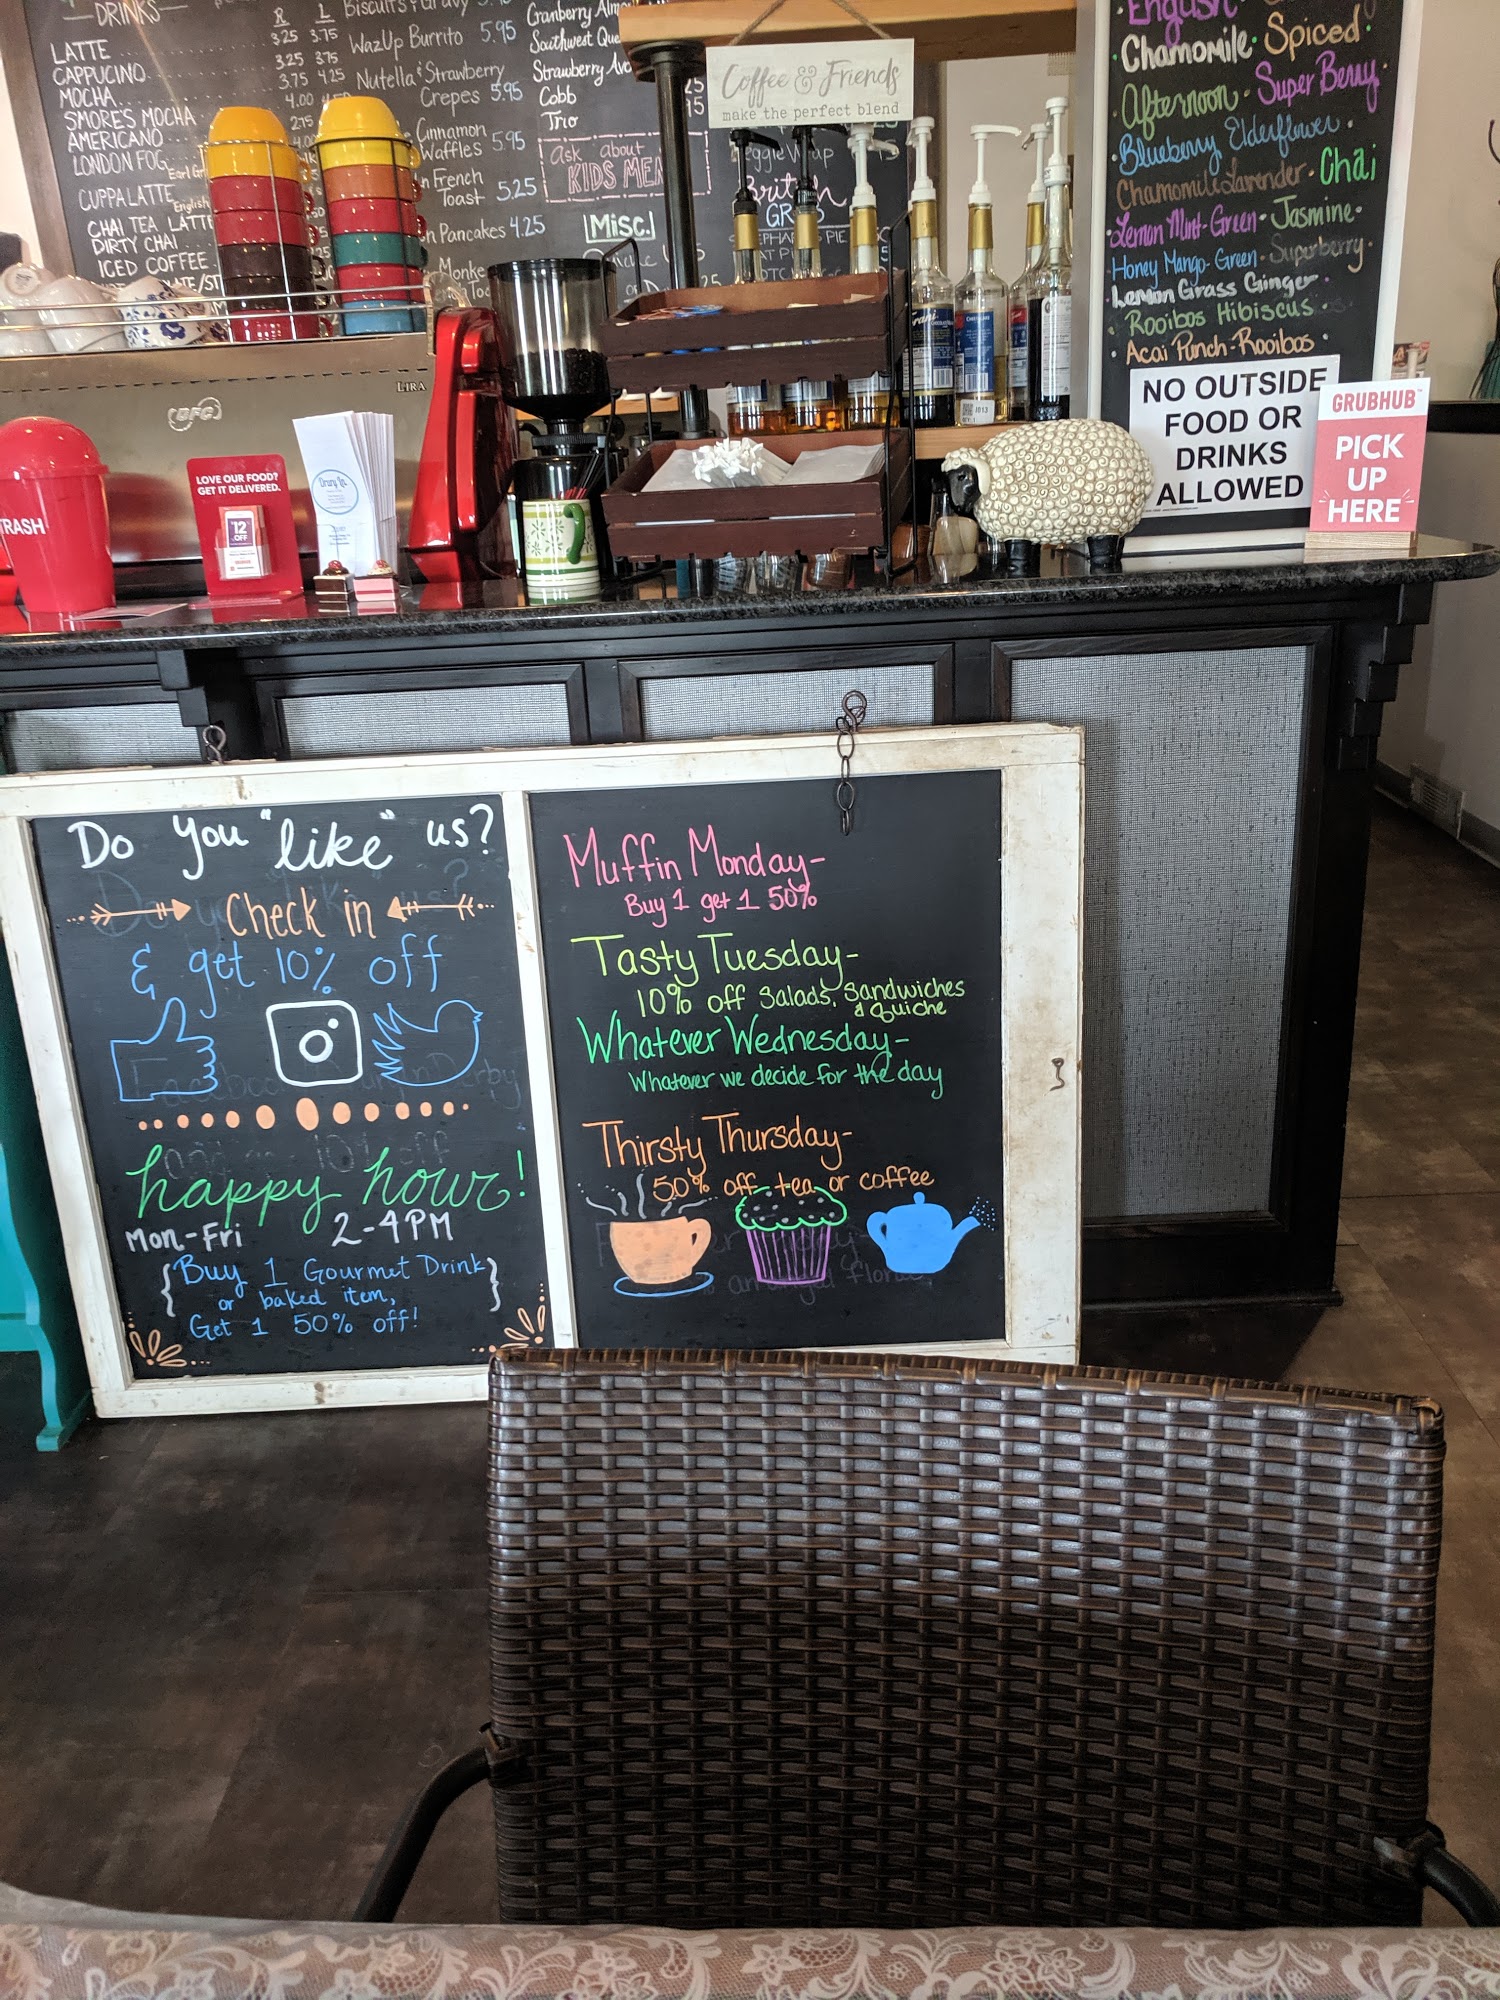 DRINKS
R L
LATTE
3.25 3.75
CAPPUCINO
3.25 3.75
MOCHA
3.75 4.25
SMORES MOCHA
4.00
AMERICANO
2.75
LONDON FOG
CUPPA LATTE
English
CHAI TEA LATTE
DIRTY CHAI
ICED COFFEE
Biscuits & Gravy
WazUp Burrito 5.95
Nutella & Strawberry
Crepes 5.95
Cinnamon
Waffles 5.95
French
Toast 5.25
Pancakes 4.25
Cranberry
Southwest
Strawberry
Cobb
Trio
Ask about
KIDS
Misc.
Coffee & Friends
make the perfect blend
English
Chamomile · Spiced
Afternoon · Super Berry
Blueberry Elderflower
Chamomile Lavender · Chai
Lemon Mint-Green · Jasmine
Honey Mango-Green · Superberry
Lemon Grass Ginger
Rooibos Hibiscus
Acai Punch-Rooibos
NO OUTSIDE
FOOD OR
DRINKS
ALLOWED
GRUBHUB
PICK
UP
HERE
LIRA
TRASH
LOVE OUR FOOD?
GET IT DELIVERED.
$12
OFF
Do you "like" us?
Check in
& get 10% off
happy hour!
Mon-Fri 2-4PM
{Buy 1 Gourmet Drink}
or baked item,
Get 1 50% off!
Muffin Monday-
Buy 1 get 1 50%
Tasty Tuesday-
10% off Salads, Sandwiches
& Quiche
Whatever Wednesday-
Whatever we decide for the day
Thirsty Thursday-
50% off tea or coffee